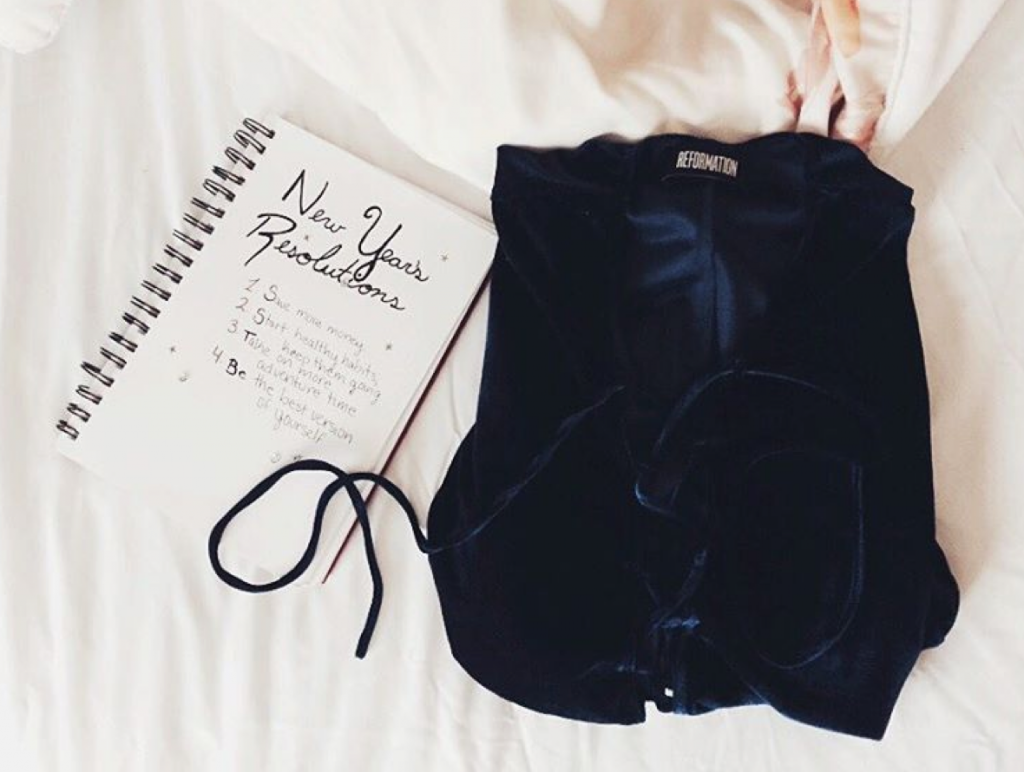 New Year's
Resolutions
1 Save more money
2 Start healthy habits,
keep them going
3 Take on more
adventure time
4 Be the best version
of yourself
REFORMATION